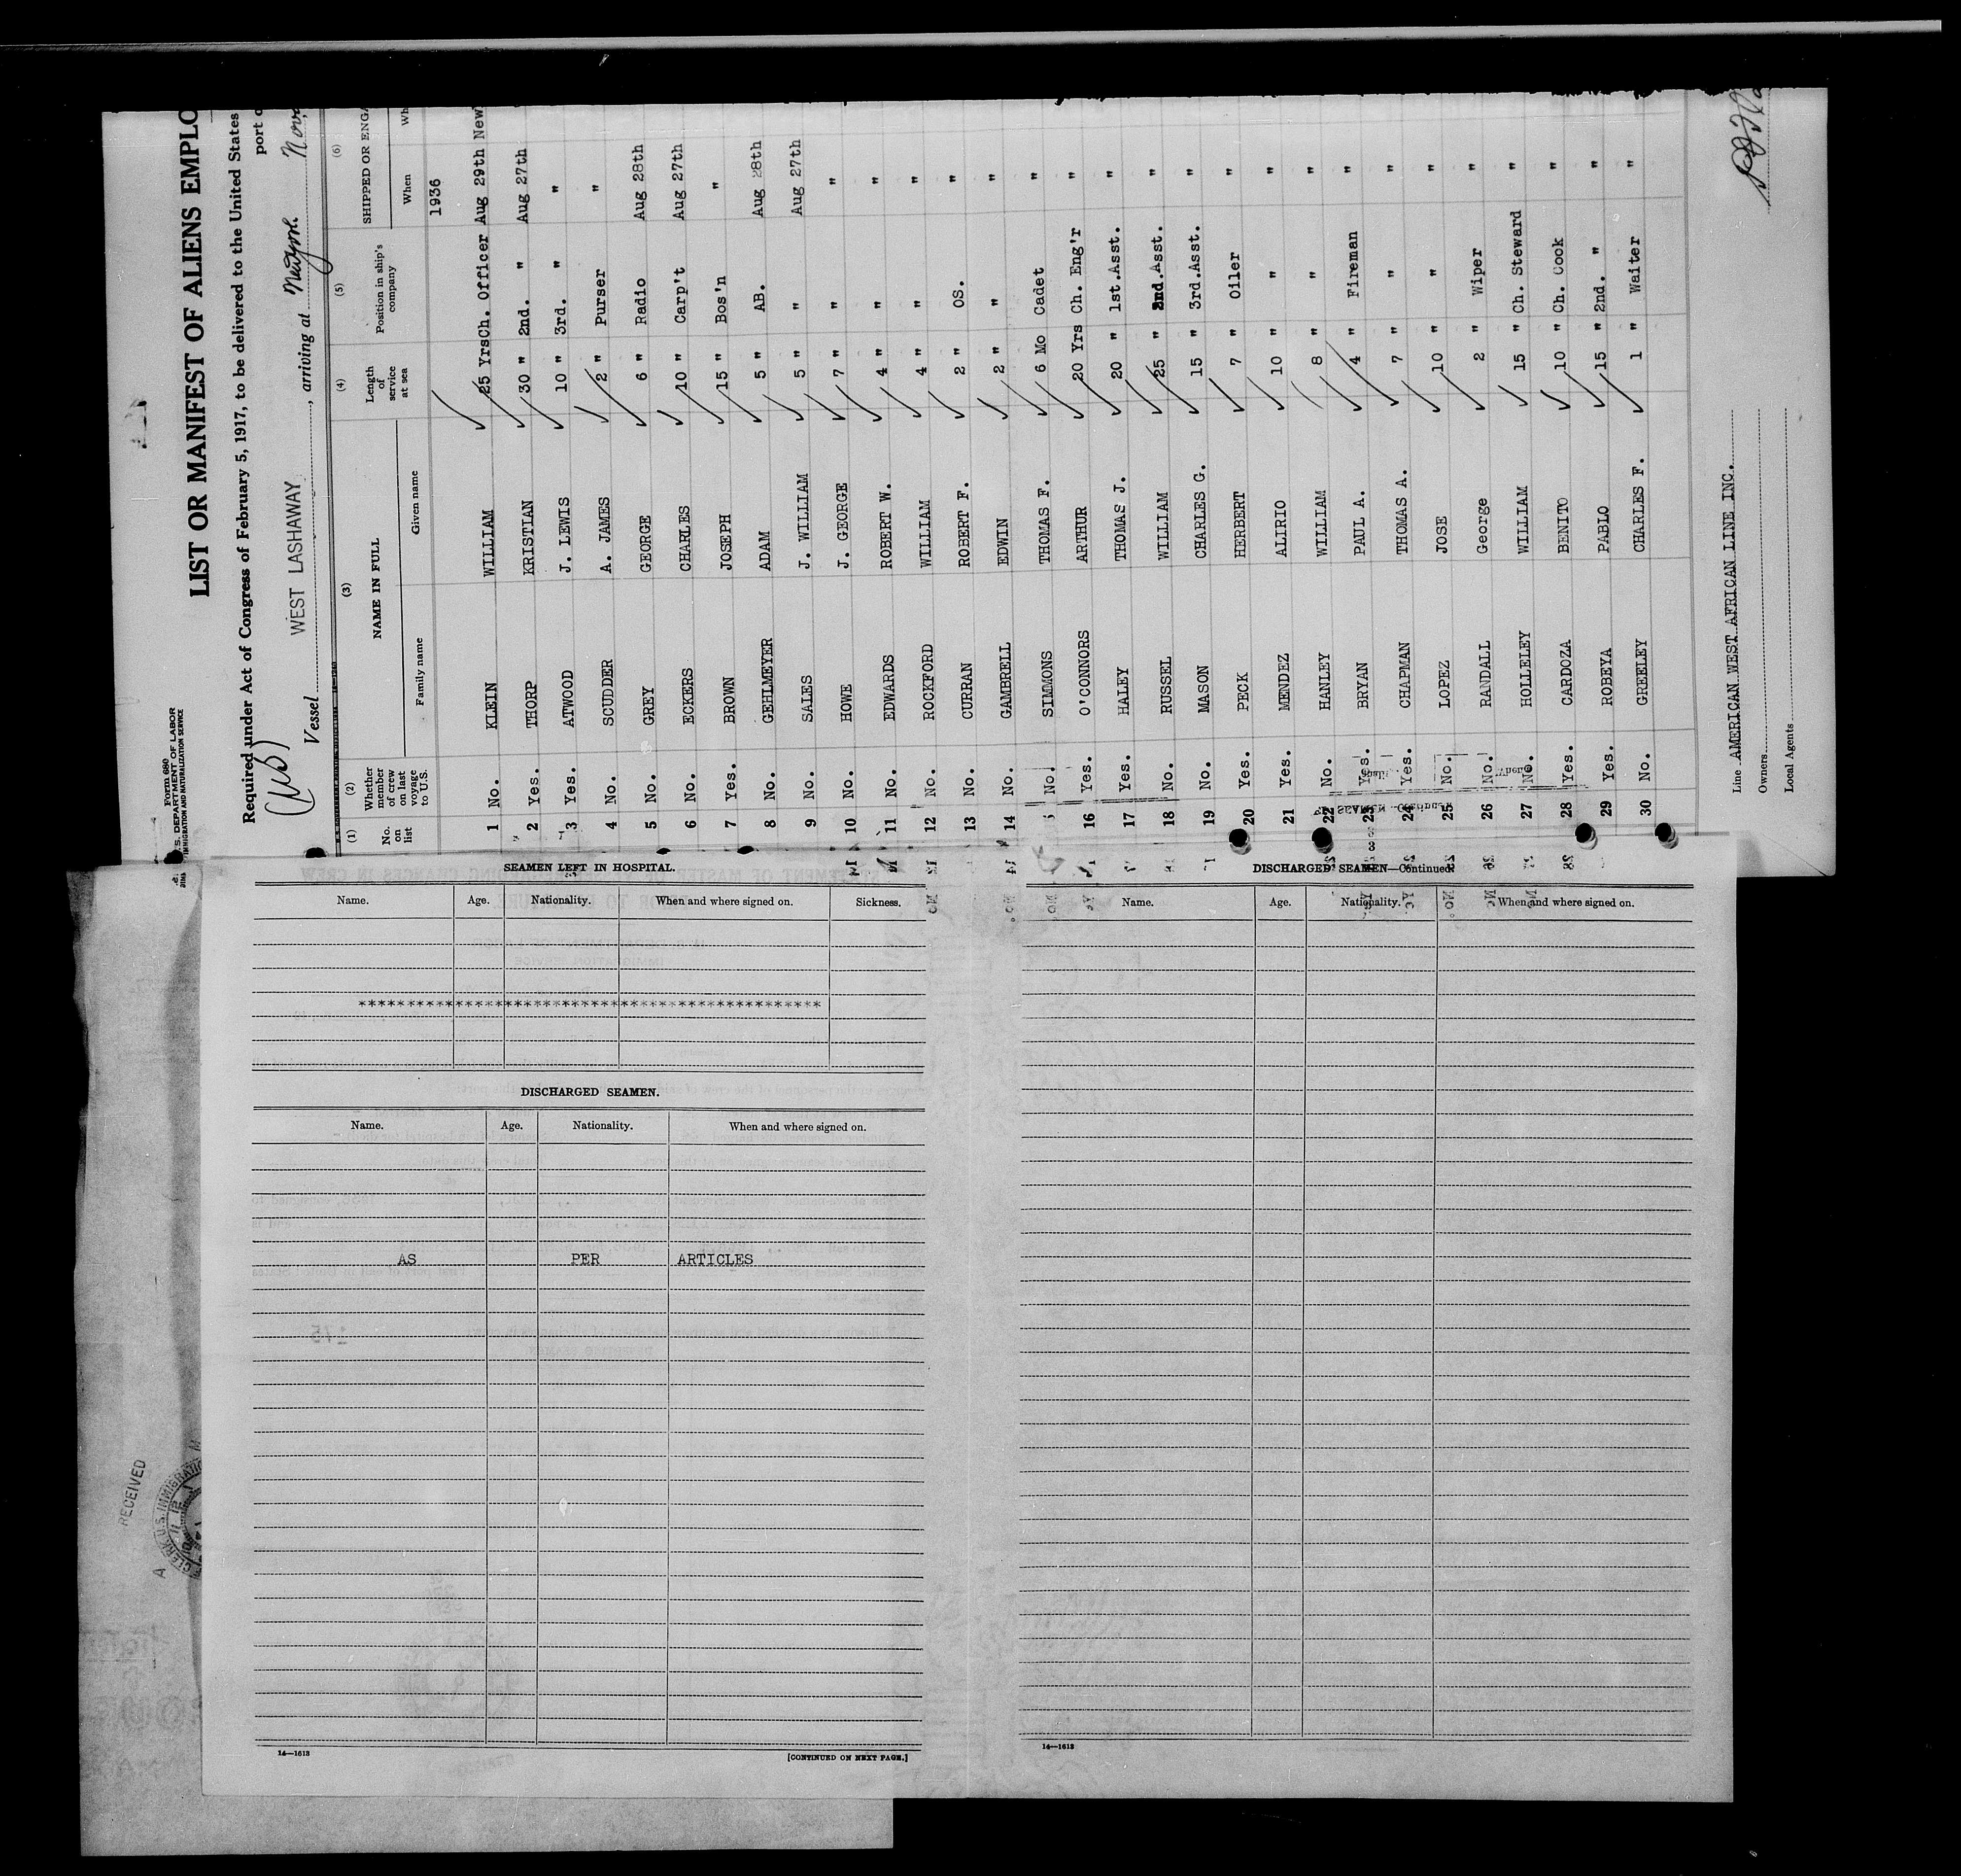 Form 680
U. S. DEPARTMENT OF LABOR
IMMIGRATION AND NATURALIZATION SERVICE
LIST OR MANIFEST OF ALIENS EMPLO
Required under Act of Congress of February 5, 1917, to be delivered to the United States
port o
Vessel WEST LASHAWAY, arriving at
(1) (2) (3) (4) (5) (6)
No. on list Whether member of crew on last voyage to U.S. NAME IN FULL Family name Given name Length of service at sea Position in ship's company SHIPPED OR ENGA When Wh
1936
1 No. KLEIN WILLIAM 25 Yrs Ch. Officer Aug 29th New
2 Yes. THORP KRISTIAN 30 " 2nd. " Aug 27th
3 Yes. ATWOOD J. LEWIS 10 " 3rd. " "
4 No. SCUDDER A. JAMES 2 " Purser "
5 No. GREY GEORGE 6 " Radio Aug 28th
6 No. ECKERS CHARLES 10 " Carp't Aug 27th
7 Yes. BROWN JOSEPH 15 " Bos'n "
8 No. GEHLMEYER ADAM 5 " AB. Aug 28th
9 No. SALES J. WILLIAM 5 " " Aug 27th
10 No. HOWE J. GEORGE 7 " " "
11 No. EDWARDS ROBERT W. 4 " " "
12 No. ROCKFORD WILLIAM 4 " " "
13 No. CURRAN ROBERT F. 2 " OS. "
14 No. GAMBRELL EDWIN 2 " " "
No. SIMMONS THOMAS F. 6 Mo Cadet "
16 Yes. O'CONNORS ARTHUR 20 Yrs Ch. Eng'r "
17 Yes. HALEY THOMAS J. 20 " 1st.Asst. "
18 No. RUSSEL WILLIAM 25 " 2nd.Asst. "
19 No. MASON CHARLES G. 15 " 3rd.Asst. "
20 Yes. PECK HERBERT 7 " Oiler "
21 Yes. MENDEZ ALIRIO 10 " " "
22 No. HANLEY WILLIAM 8 " " "
23 Yes. BRYAN PAUL A. 4 " Fireman "
24 Yes. CHAPMAN THOMAS A. 7 " " "
25 No. LOPEZ JOSE 10 " " "
26 No. RANDALL George 2 " Wiper "
27 No. HOLLELEY WILLIAM 15 " Ch. Steward "
28 Yes. CARDOZA BENITO 10 " Ch. Cook "
29 Yes. ROBEYA PABLO 15 " 2nd. " "
30 No. GREELEY CHARLES F. 1 " Waiter "
Line AMERICAN WEST AFRICAN LINE INC.
Owners
Local Agents
SEAMEN LEFT IN HOSPITAL.
Name. Age. Nationality. When and where signed on. Sickness.
************************************************
DISCHARGED SEAMEN.
Name. Age. Nationality. When and where signed on.
AS PER ARTICLES
14—1613
[CONTINUED ON NEXT PAGE.]
DISCHARGED SEAMEN—Continued.
Name. Age. Nationality. When and where signed on.
14—1613
RECEIVED